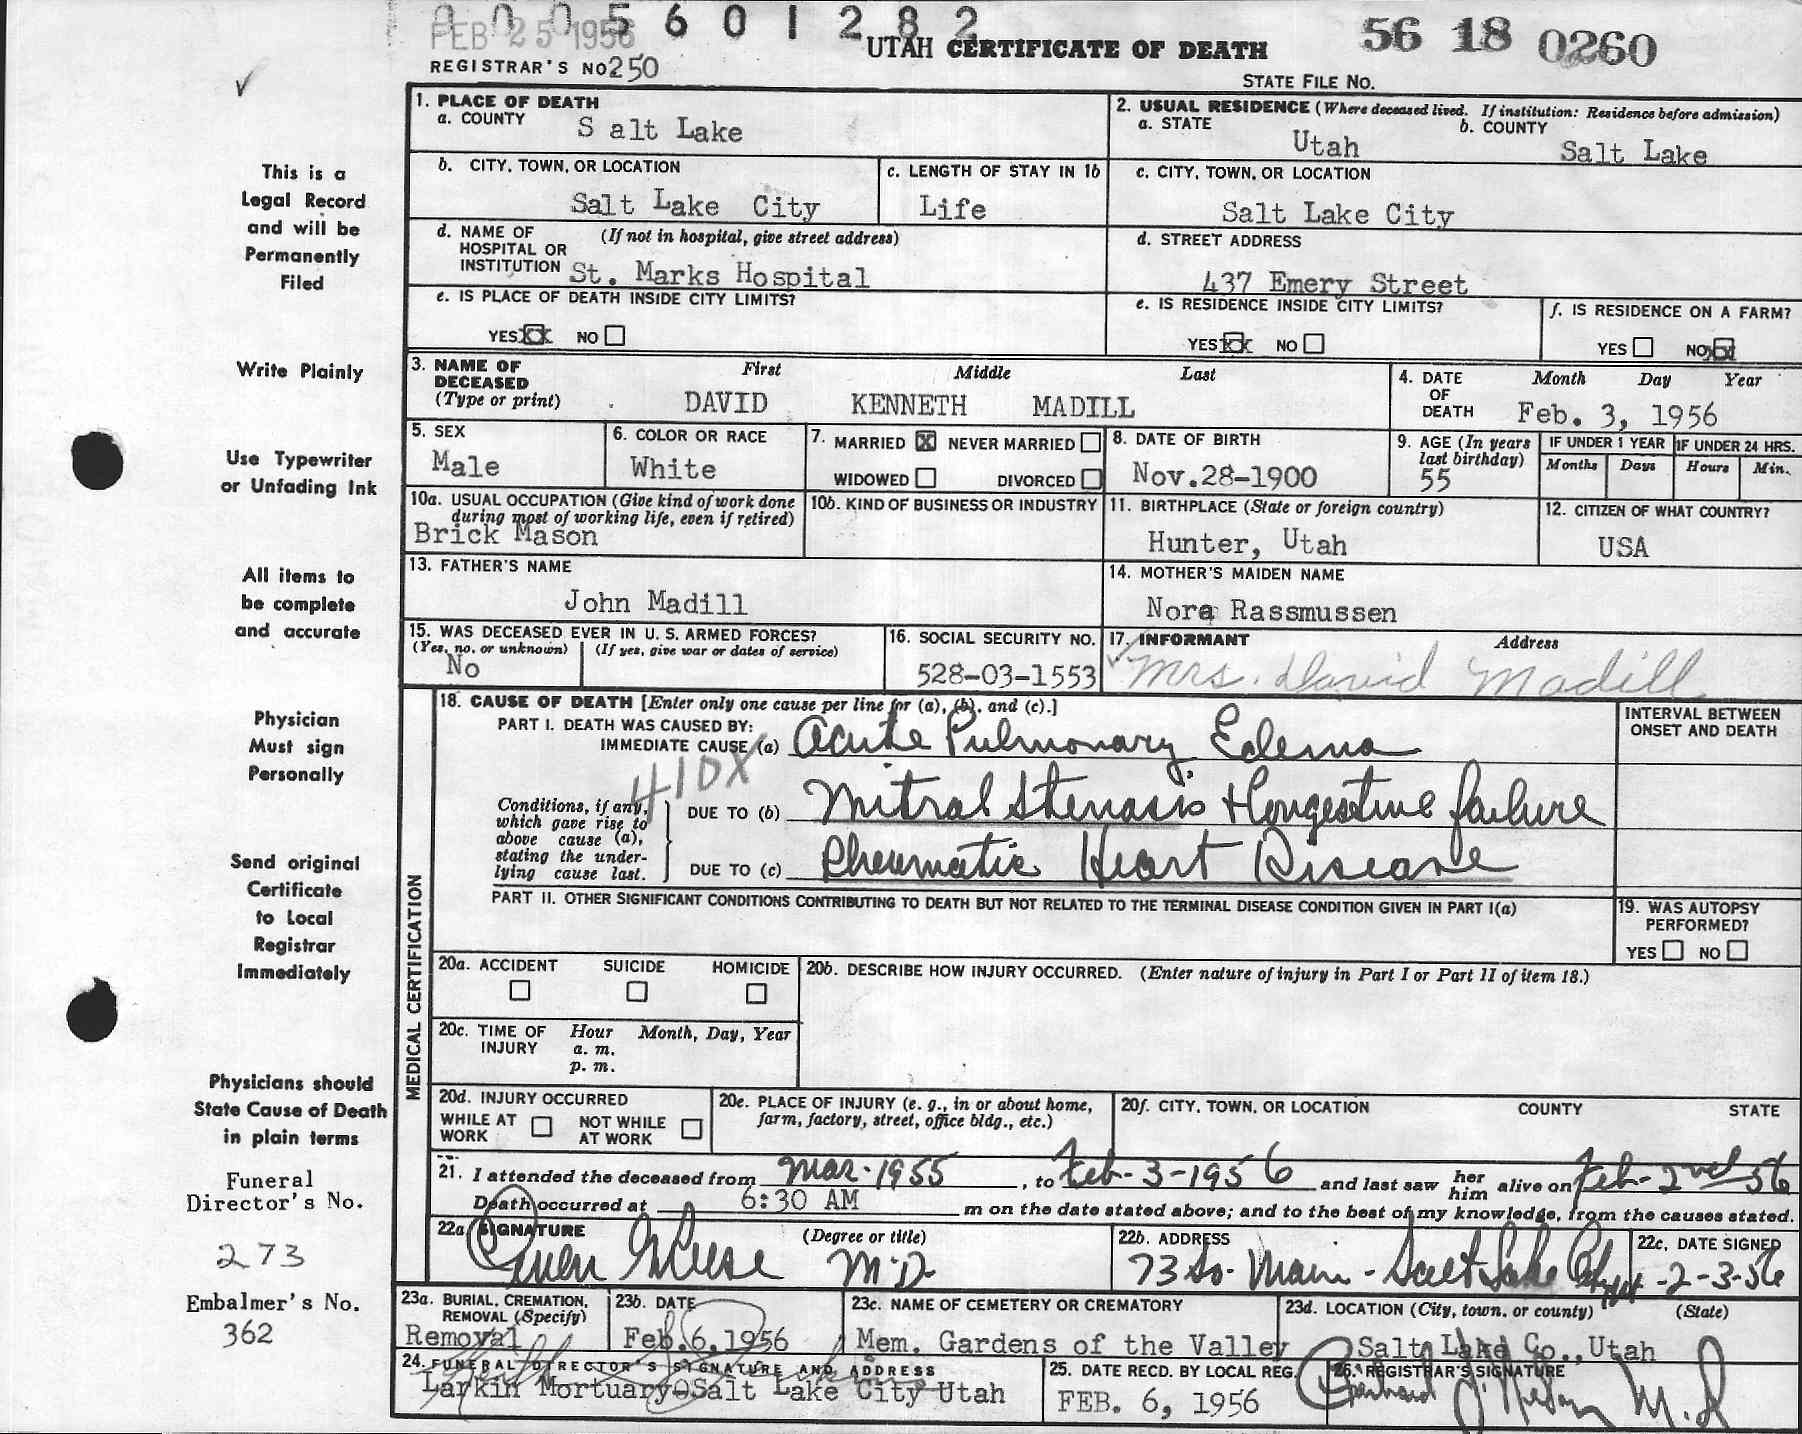 0005601282
FEB 25 1956
UTAH CERTIFICATE OF DEATH
56 18 0260
REGISTRAR'S NO 250
STATE FILE NO.
This is a
Legal Record
and will be
Permanently
Filed
Write Plainly
Use Typewriter
or Unfading Ink
All items to
be complete
and accurate
Physician
Must sign
Personally
Send original
Certificate
to Local
Registrar
Immediately
Physicians should
State Cause of Death
in plain terms
Funeral
Director's No.
273
Embalmer's No.
362
1. PLACE OF DEATH
a. COUNTY S alt Lake
2. USUAL RESIDENCE (Where deceased lived. If institution: Residence before admission)
a. STATE Utah b. COUNTY Salt Lake
b. CITY, TOWN, OR LOCATION Salt Lake City
c. LENGTH OF STAY IN 1b Life
c. CITY, TOWN, OR LOCATION Salt Lake City
d. NAME OF HOSPITAL OR INSTITUTION (If not in hospital, give street address)
St. Marks Hospital
d. STREET ADDRESS
437 Emery Street
e. IS PLACE OF DEATH INSIDE CITY LIMITS?
YES XX NO
e. IS RESIDENCE INSIDE CITY LIMITS?
YES XX NO
f. IS RESIDENCE ON A FARM?
YES NO XX
3. NAME OF DECEASED (Type or print)
First Middle Last
DAVID KENNETH MADILL
4. DATE OF DEATH Month Day Year
Feb. 3, 1956
5. SEX
Male
6. COLOR OR RACE
White
7. MARRIED X NEVER MARRIED
WIDOWED DIVORCED
8. DATE OF BIRTH
Nov.28-1900
9. AGE (In years last birthday)
55
IF UNDER 1 YEAR IF UNDER 24 HRS.
Months Days Hours Min.
10a. USUAL OCCUPATION (Give kind of work done during most of working life, even if retired)
Brick Mason
10b. KIND OF BUSINESS OR INDUSTRY
11. BIRTHPLACE (State or foreign country)
Hunter, Utah
12. CITIZEN OF WHAT COUNTRY?
USA
13. FATHER'S NAME
John Madill
14. MOTHER'S MAIDEN NAME
Nora Rassmussen
15. WAS DECEASED EVER IN U. S. ARMED FORCES?
(Yes, no, or unknown) (If yes, give war or dates of service)
No
16. SOCIAL SECURITY NO.
528-03-1553
17. INFORMANT Address
Mrs. David Madill
MEDICAL CERTIFICATION
18. CAUSE OF DEATH [Enter only one cause per line for (a), (b), and (c).]
PART I. DEATH WAS CAUSED BY:
IMMEDIATE CAUSE (a) Acute Pulmonary Edema
410X
Conditions, if any, which gave rise to above cause (a), stating the underlying cause last.
DUE TO (b) Mitral Stenosis + Congestive failure
DUE TO (c) Rheumatic Heart Disease
INTERVAL BETWEEN ONSET AND DEATH
PART II. OTHER SIGNIFICANT CONDITIONS CONTRIBUTING TO DEATH BUT NOT RELATED TO THE TERMINAL DISEASE CONDITION GIVEN IN PART I(a)
19. WAS AUTOPSY PERFORMED?
YES NO
20a. ACCIDENT SUICIDE HOMICIDE
20b. DESCRIBE HOW INJURY OCCURRED. (Enter nature of injury in Part I or Part II of item 18.)
20c. TIME OF INJURY Hour Month, Day, Year
a. m.
p. m.
20d. INJURY OCCURRED
WHILE AT WORK NOT WHILE AT WORK
20e. PLACE OF INJURY (e. g., in or about home, farm, factory, street, office bldg., etc.)
20f. CITY, TOWN, OR LOCATION COUNTY STATE
21. I attended the deceased from Mar-1955, to Feb-3-1956 and last saw her him alive on Feb-2nd 56
Death occurred at 6:30 AM m on the date stated above; and to the best of my knowledge, from the causes stated.
22a SIGNATURE (Degree or title)
M.D.
22b. ADDRESS
73 So. Main - Salt Lake City
22c. DATE SIGNED
2-3-56
23a. BURIAL, CREMATION, REMOVAL (Specify)
Removal
23b. DATE
Feb.6,1956
23c. NAME OF CEMETERY OR CREMATORY
Mem. Gardens of the Valley
23d. LOCATION (City, town, or county) (State)
Salt Lake Co., Utah
24. FUNERAL DIRECTOR'S SIGNATURE AND ADDRESS
Larkin Mortuary-Salt Lake City Utah
25. DATE RECD. BY LOCAL REG.
FEB. 6, 1956
26. REGISTRAR'S SIGNATURE
M.D